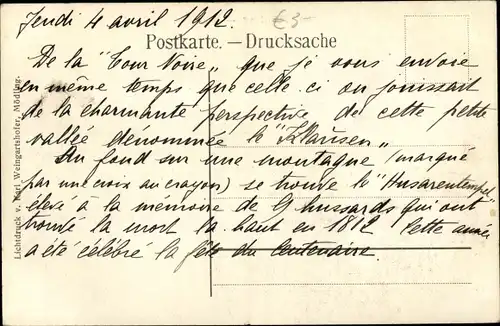 Jeudi 4 avril 1912.
€3-
Postkarte. — Drucksache
De la "Tour Noire" que je vous envoie
en même temps que celle-ci on jouissait
de la charmante perspective de cette petite
vallée dénommée le "Klausen"
Au fond sur une montagne (marqué
par une croix au crayon) se trouve le "Husarentempel"
élevé à la mémoire de 9 hussards qui ont
trouvé la mort la haut en 1812 Cette année
a été célébré la fête du Centenaire.
Lichtdruck v. Karl Weingartshofer, Mödling.